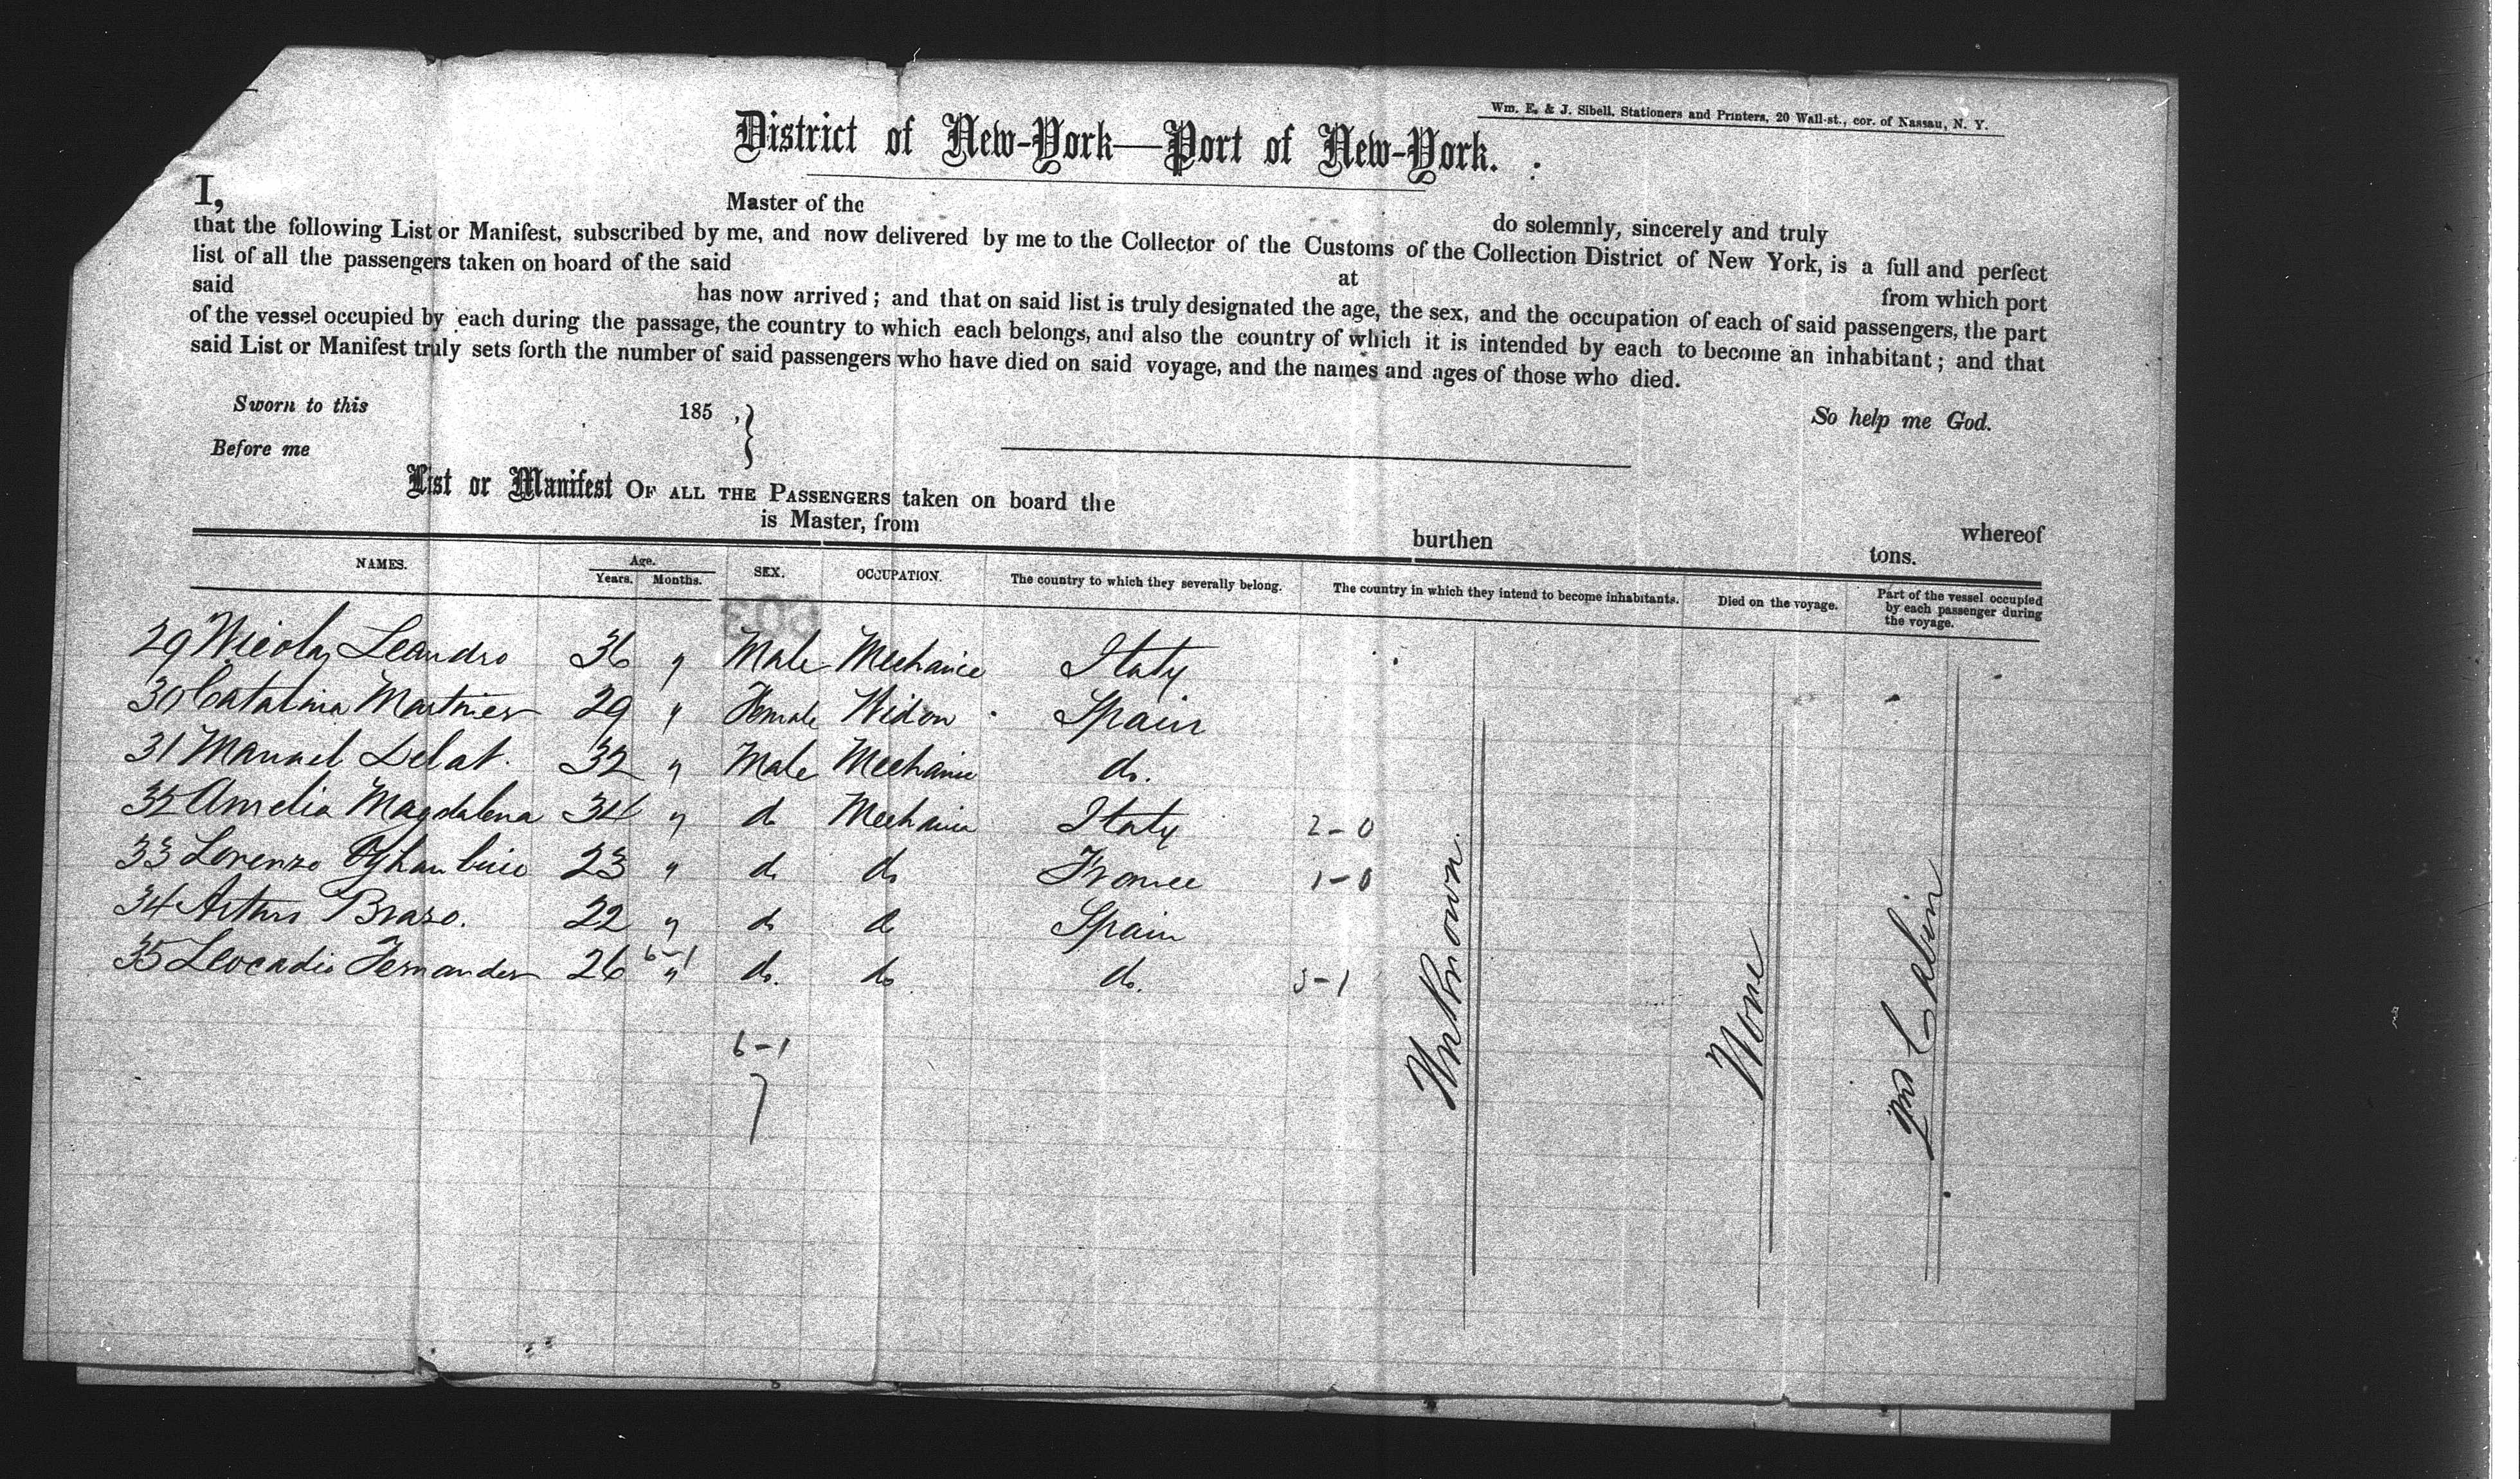 Wm. E. & J. Sibell, Stationers and Printers, 20 Wall-st., cor. of Nassau, N. Y.
District of New-York—Port of New-York.
I, Master of the do solemnly, sincerely and truly
that the following List or Manifest, subscribed by me, and now delivered by me to the Collector of the Customs of the Collection District of New York, is a full and perfect
list of all the passengers taken on board of the said at from which port
said has now arrived; and that on said list is truly designated the age, the sex, and the occupation of each of said passengers, the part
of the vessel occupied by each during the passage, the country to which each belongs, and also the country of which it is intended by each to become an inhabitant; and that
said List or Manifest truly sets forth the number of said passengers who have died on said voyage, and the names and ages of those who died.
So help me God.
Sworn to this 185 ,
Before me
List or Manifest OF ALL THE PASSENGERS taken on board the whereof
is Master, from burthen tons.
NAMES. Age. Years. Months. SEX. OCCUPATION. The country to which they severally belong. The country in which they intend to become inhabitants. Died on the voyage. Part of the vessel occupied by each passenger during the voyage.
603
29 Nicolas Leandro 36 " Male Mechanic Italy
30 Catalina Martines 29 " Female Widow Spain
31 Manuel Delat. 32 " Male Mechanic do.
32 Amelia Magdalena 34 " do Mechanic Italy 2-0
33 Lorenzo 23 " do do France 1-0
34 Arturo Braso. 22 " do do Spain
35 Leocadio Fernandez 26 " do. do do. 3-1
6-1
6-1
7
Unknown
None
Cabin